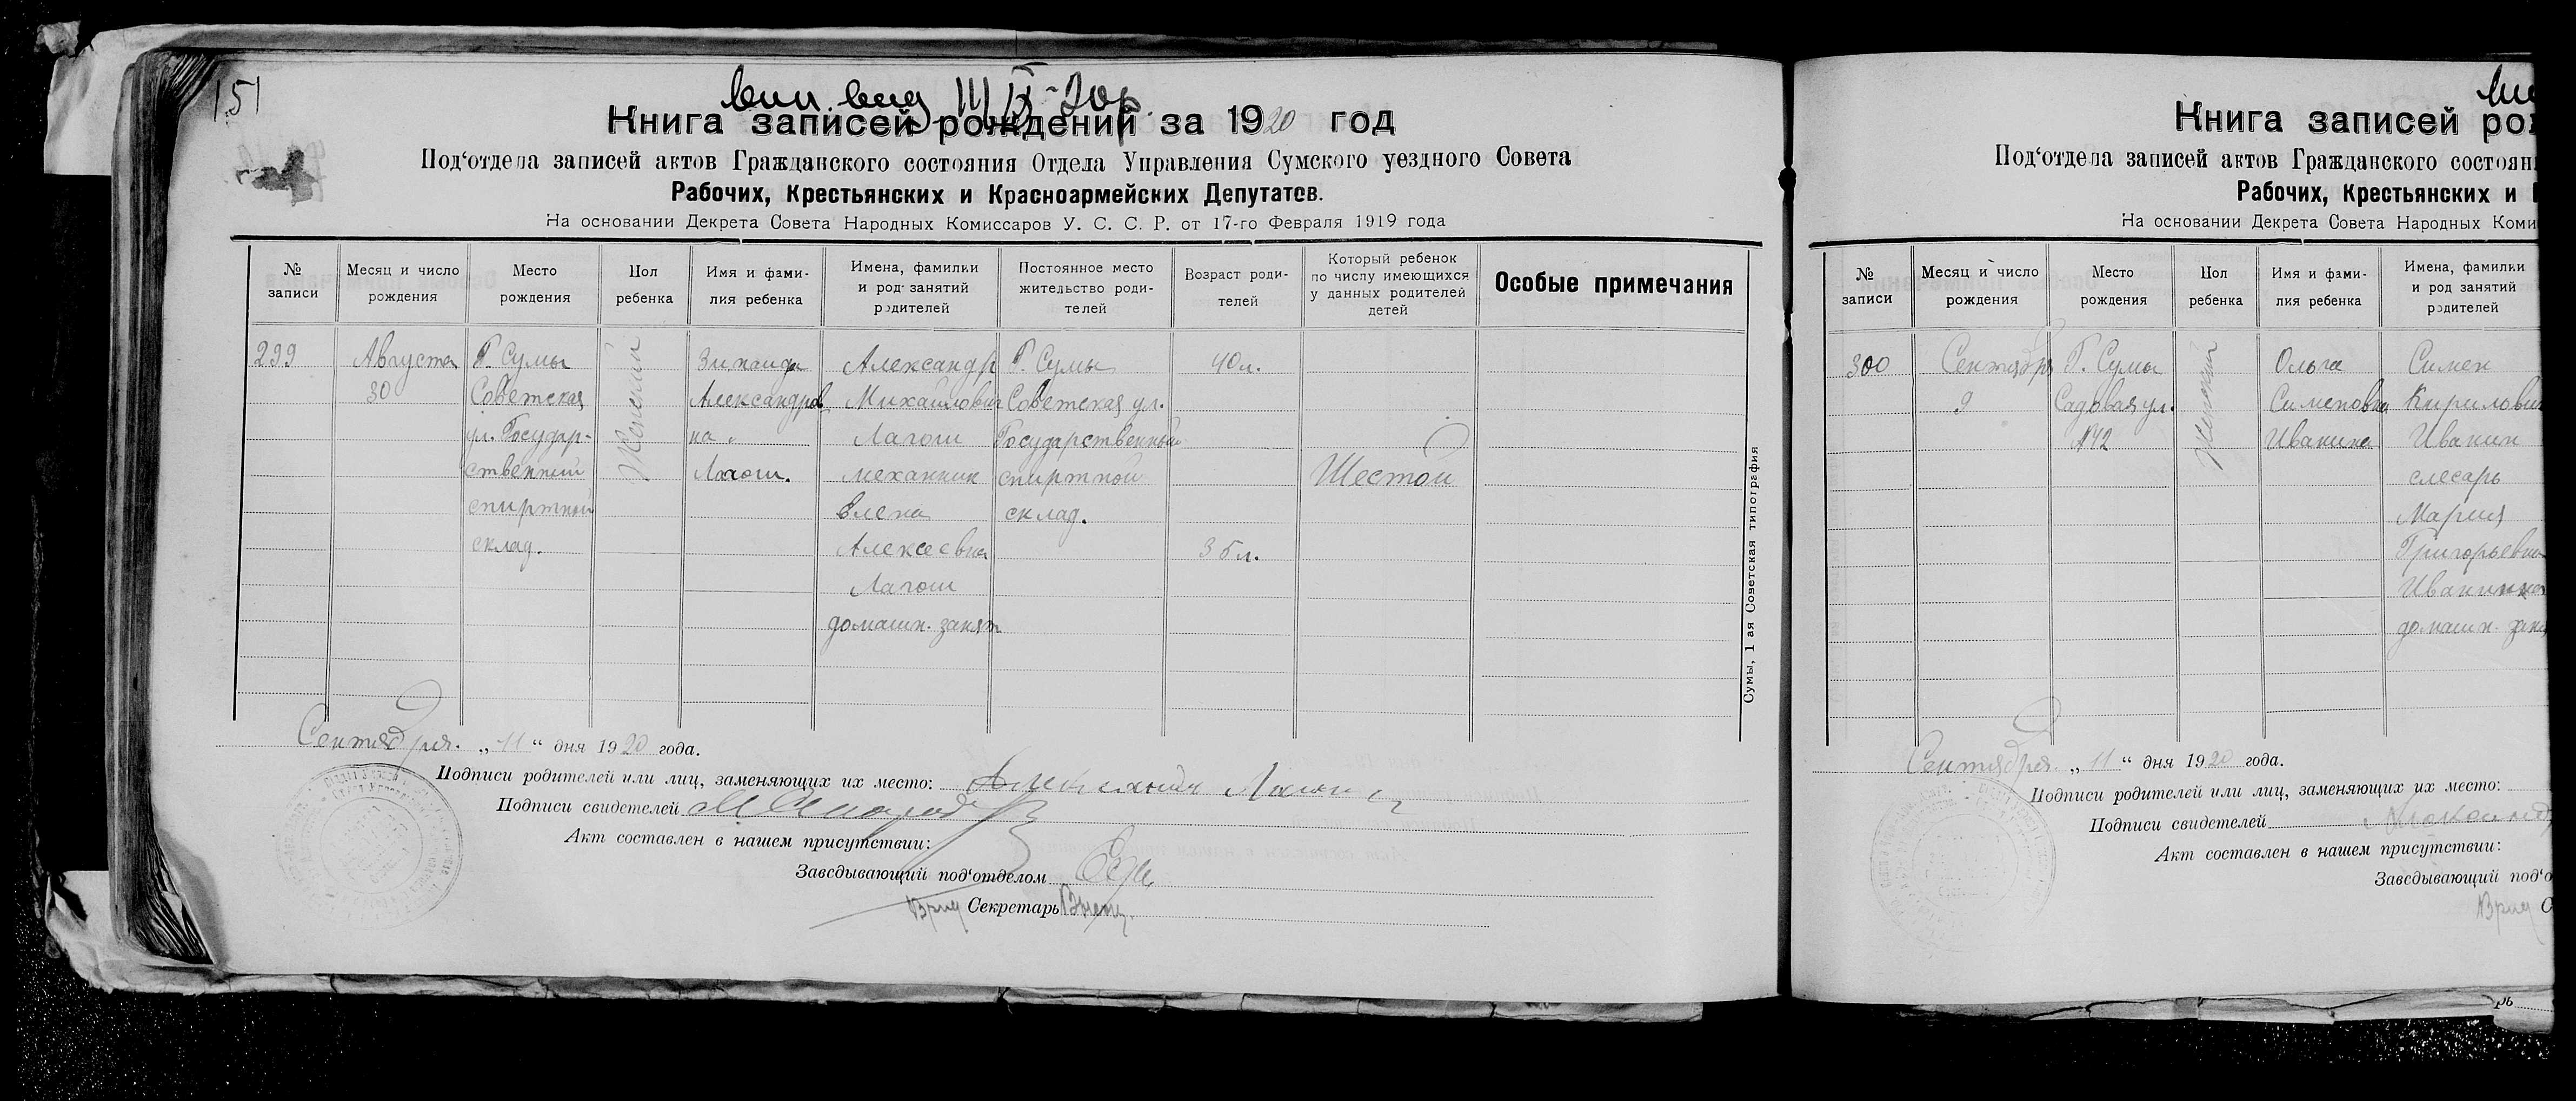 151
Книга записей рождений за 1920 год
Под‘отдела записей актов Гражданского состояния Отдела Управления Сумского уездного Совета
Рабочих, Крестьянских и Красноармейских Депутатов.
На основании Декрета Совета Народных Комиссаров У. С. С. Р. от 17-го Февраля 1919 года
№ записи
Месяц и число рождения
Место рождения
Пол ребенка
Имя и фами-
лия ребенка
Имена, фамилии
и род занятий
родителей
Постоянное место
жительство роди-
телей
Возраст роди-
телей
Который ребенок
по числу имеющихся
у данных родителей
детей
Особые примечания
299
Августа
30
Г. Сумы
Советская
ул. Государ-
ственный
спиртной
склад.
Женский
Зинаида
Александров
на
Лагош.
Александр
Михайлович
Лагош
механик
Елена
Алексеевна
Лагош
домашн. занят
Г. Сумы
Советская ул.
Государственный
спиртной
склад.
40 л.
35 л.
Шестой
Сумы, 1 ая Советская типография
Сентября. „11“ дня 1920 года.
Подписи родителей или лиц, заменяющих их место: Александр Лагош
Подписи свидетелей
Акт составлен в нашем присутствии:
Заведывающий под‘отделом
Врид Секретарь
Книга записей ро
Под‘отдела записей актов Гражданского состоян
Рабочих, Крестьянских и
На основании Декрета Совета Народных Коми
№ записи
Месяц и число рождения
Место рождения
Пол ребенка
Имя и фами-
лия ребенка
Имена, фамилии
и род занятий
родителей
300
Сентября
9
Г. Сумы
Садовая ул.
№42
Женский
Ольга
Симеповна
Иванина
Симен
Кирилович
Иванин
слесарь
Мария
Григорьевна
Иванина
домашн. зан
Сентября. „11“ дня 1920 года.
Подписи родителей или лиц, заменяющих их место:
Подписи свидетелей
Акт составлен в нашем присутствии:
Заведывающий под‘о
Врид С